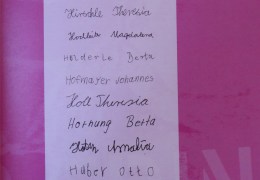 Hirschle Theresia
Magdalena
Holderle Berta
Hofmayer Johannes
Holl Theresia
Hornung Berta
Amalia
Huber Otto